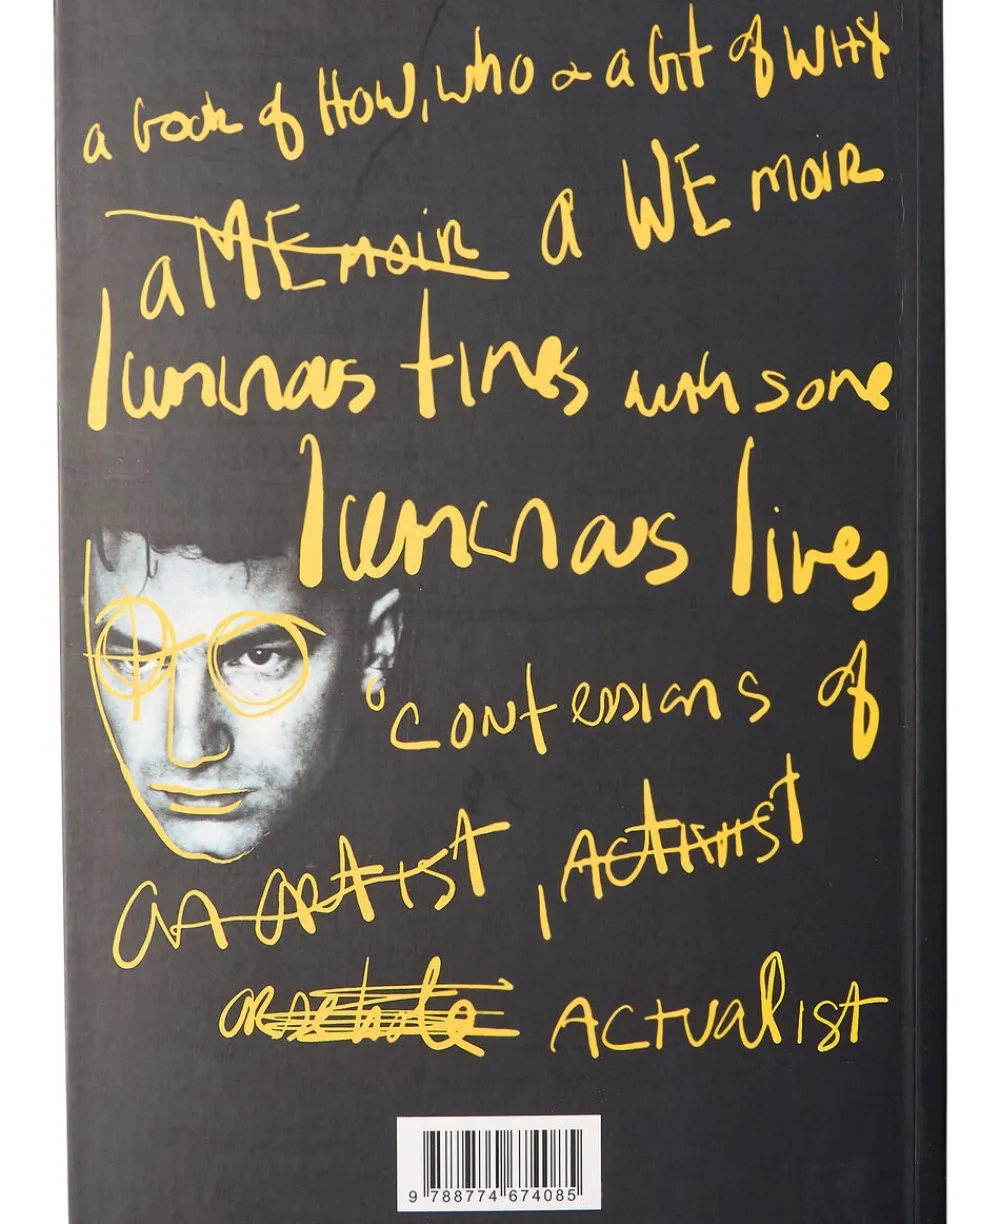 a book of HOW, who & a bit of WHY
a MEmoir a WE moir
luminous times with some
luminous lives
'confessions of
an artist, activist
arsehole ACTUALIST
9 788774 674085